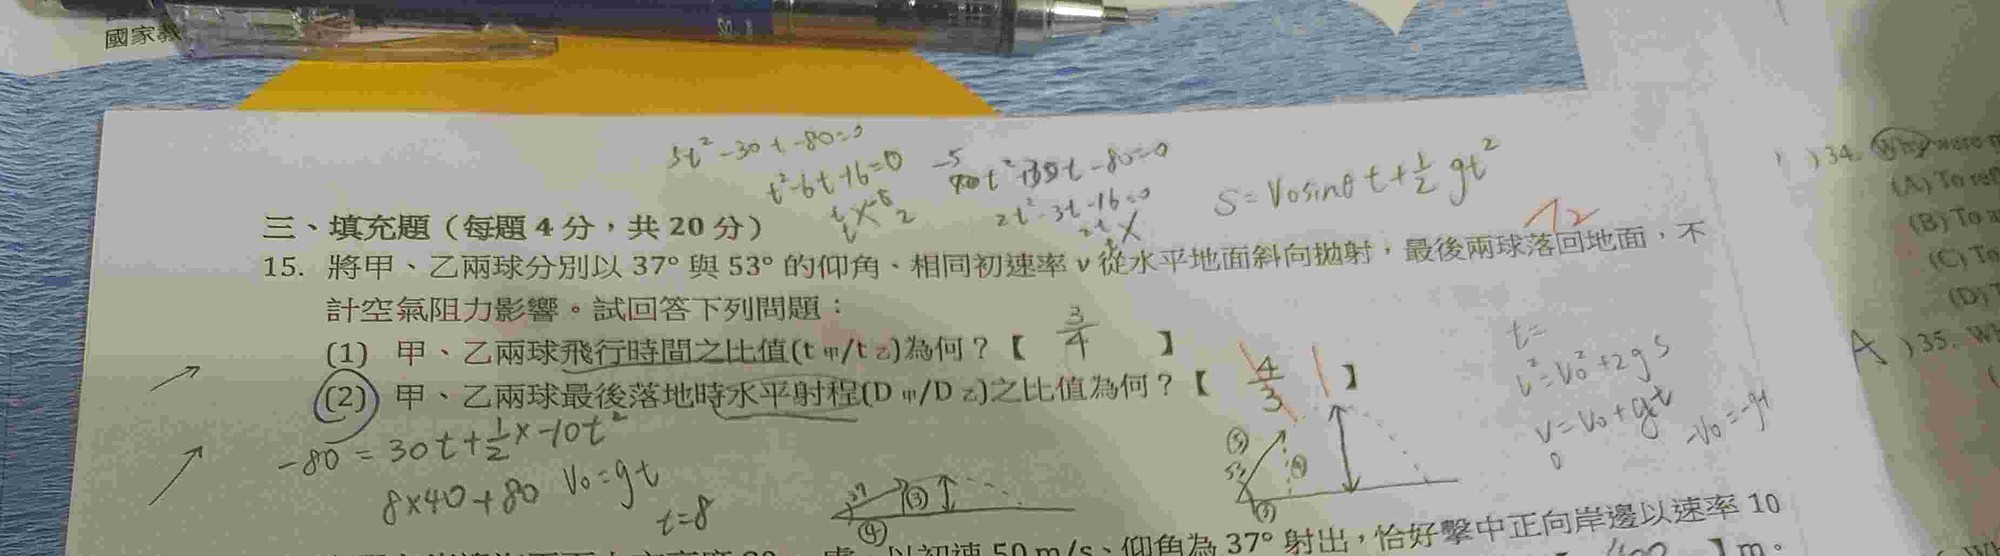 國家教
5t²-30t-80=0
t²-6t-16=0
2t²-3t-16=0
S=V₀sinθt+½gt²
三、填充題（每題 4 分，共 20 分）
15. 將甲、乙兩球分別以 37° 與 53° 的仰角、相同初速率 v 從水平地面斜向拋射，最後兩球落回地面，不
計空氣阻力影響。試回答下列問題：
(1) 甲、乙兩球飛行時間之比值(t甲/t乙)為何？【 3/4 】
(2) 甲、乙兩球最後落地時水平射程(D甲/D乙)之比值為何？【 4/3 1 】
t=
V²=V₀²+2gS
V=V₀+gt
0
-V₀=-gt
-80=30t+½×-10t²
8×40+80
V₀=gt
t=8
37
③
④
⑤
53
④
③
以初速 50 m/s、仰角為 37° 射出，恰好擊中正向岸邊以速率 10
】m。
)34. Why were
(A) To
(B) To
(C) To
(D)
A )35.